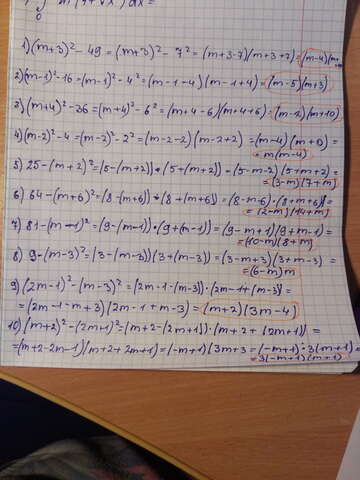 0
1) (m+3)² - 49 = (m+3)² - 7² = (m+3-7)(m+3+7) = (m-4)(m
2) (m-1)² - 16 = (m-1)² - 4² = (m-1-4)(m-1+4) = (m-5)(m+3)
3) (m+4)² - 36 = (m+4)² - 6² = (m+4-6)(m+4+6) = (m-2)(m+10)
4) (m-2)² - 4 = (m-2)² - 2² = (m-2-2)(m-2+2) = (m-4)(m+0) =
= m(m-4)
5) 25 - (m+2)² = [5-(m+2)] • (5+(m+2)) = (5-m-2)(5+m+2) =
= (3-m)(7+m)
6) 64 - (m+6)² = (8-(m+6)) • (8+(m+6)) = (8-m-6) • (8+m+6) =
= (2-m)(14+m)
7) 81 - (m-1)² = (9-(m-1)) • (9+(m-1)) = (9-m+1)(9+m-1) =
= (10-m)(8+m)
8) 9 - (m-3)² = (3-(m-3))(3+(m-3)) = (3-m+3)(3+m-3) =
= (6-m)m
9) (2m-1)² - (m-3)² = (2m-1-(m-3)) • (2m-1+(m-3)) =
= (2m-1-m+3)(2m-1+m-3) = (m+2)(3m-4)
10) (m+2)² - (2m+1)² = (m+2-(2m+1)) • (m+2+(2m+1)) =
= (m+2-2m-1)(m+2+2m+1) = (-m+1)(3m+3 = (-m+1) • 3(m+1) =
= 3(-m+1)(m+1)